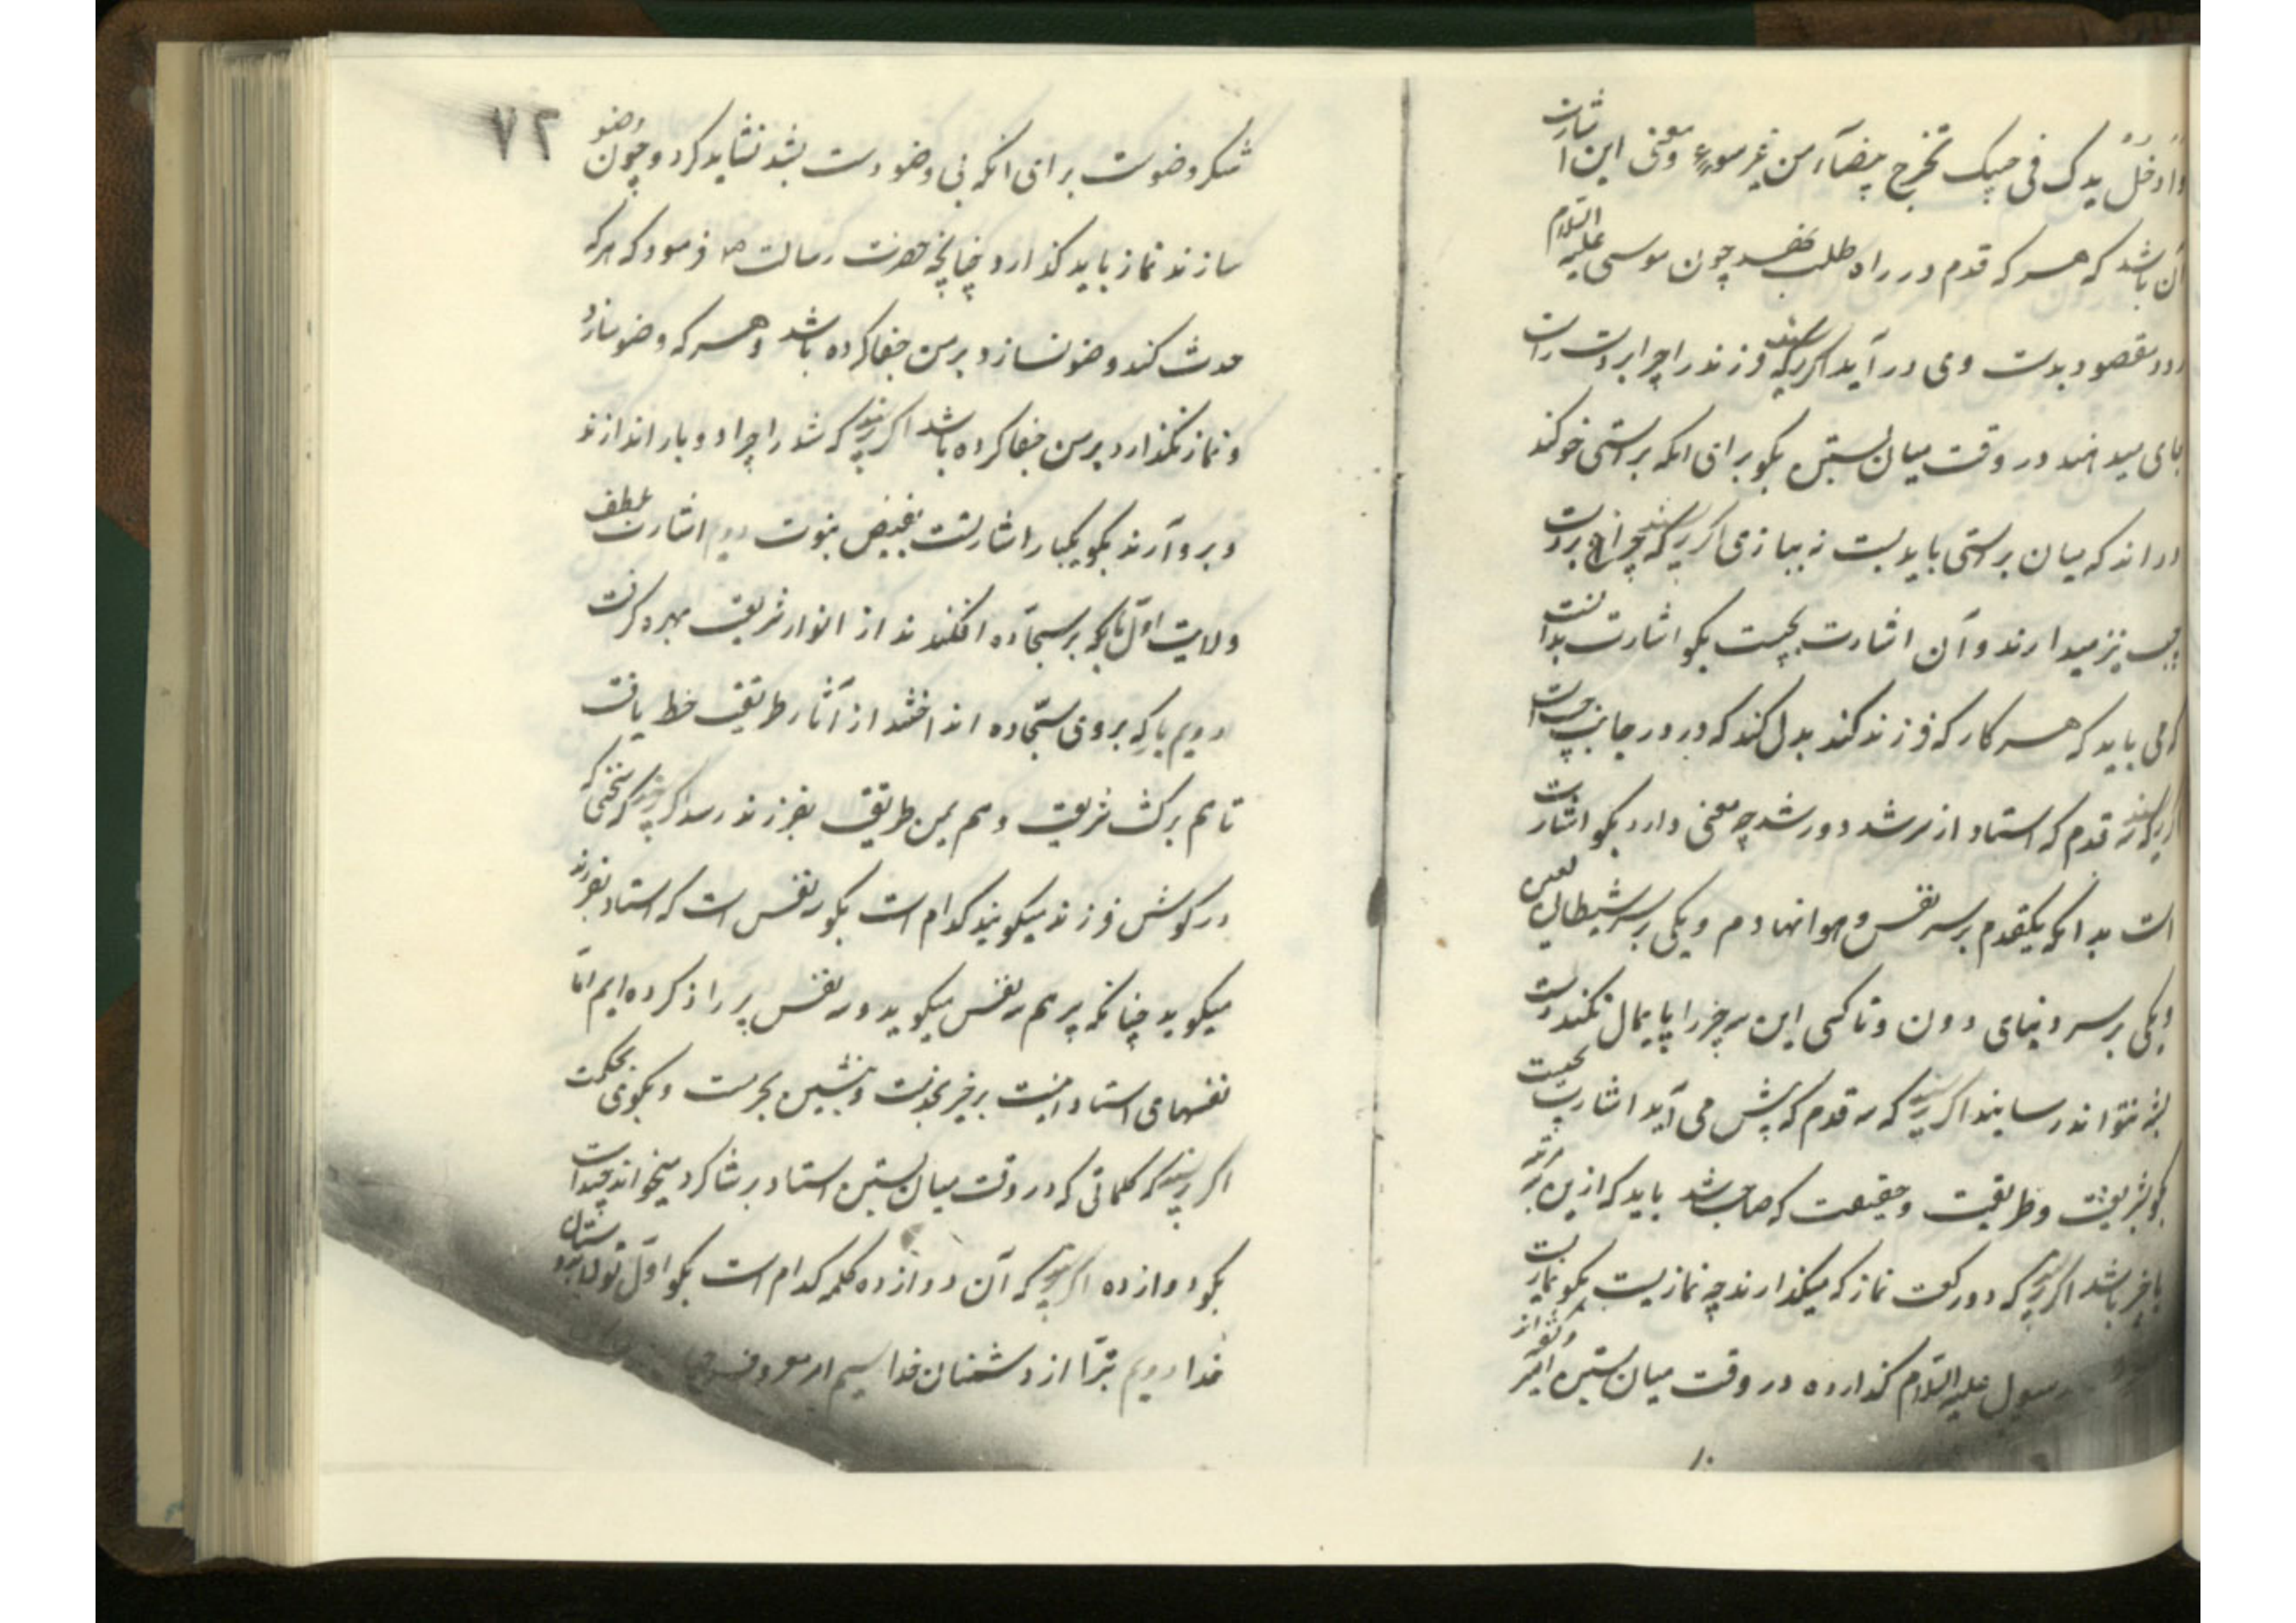 وادخل یدک فی جیبک تخرج بیضآء من غیر سوء و معنی این اشارت
آن باشد که هر که قدم در راه طلب نهد چون موسی علیه السلام
مقصود بدست وی در آید اگر پرسند که فرزند را چرا بر دست راست
جای میدهند در وقت میان بستن بگو برای انکه براستی خو کند
که میان براستی باید بست نه ببازی اگر پرسند که چرا بر دست
چپ نیز میدارند و آن اشارت بچیست بگو اشارت بدانست
که می باید که هر کار که فرزند کند بدل کند که در در جانب چپ است
اگر پرسند که سه قدم که استاد از مرشد دور شد چه معنی دارد بگو اشارت
است بدانکه یکقدم بر سر نفس و هوا نهادم و یکی بر سر شیطان لعین
و یکی بر سر دنیای دون و تا کسی این سه چیز را پایمال نکند دست
بشد نتواند رسانید اگر پرسند که سه قدم که پیش می آید اشارت بچیست
بگو بشریعت و طریقت و حقیقت که صاحب شد باید که ازین سه مرتبه
با خبر باشد اگر پرسند که دو رکعت نماز که میگذارند چه نمازیست بگو نمازیست
رسول علیه السلام گذارده در وقت میان بستن امیر و بتواند
۷۲
شکر وضوست برای انکه بی وضو دست بشد نشاید کرد و چون وضو
سازند نماز باید گذارد چنانچه حضرت رسالت ص فرمود که هر که
حدث کند و وضو نسازد بر من جفا کرده باشد و هر که وضو سازد
و نماز نگذارد بر من جفا کرده باشد اگر پرسند که شد را چرا دو بار اندازند
و بردارند بگو یکبار اشارتست بفیض نبوت دویم اشارت بلطف
ولایت اول بار که بر سجاده افکندند از انوار شریعت بهره گرفت
دویم بار که بروی سجاده انداختند از آثار طریقت حظ یافت
تا هم برکت شریعت و هم یمن طریقت بفرزند رسد اگر پرسند که سخنی که
در گوش فرزند میگویند کدام است بگو سه نفس است که استاد بفرزند
میگوید چنانکه پیر هم سه نفس میگوید و سه نفس پیر را ذکر کرده ایم اما
نفسهای استاد اینست برخیز بخدمت و بنشین بحرمت و بگوی بحکمت
اگر پرسند که کلماتی که در وقت میان بستن استاد بر شاگرد میخواند چند است
بگو دوازده اگر پرسند که آن دوازده کلمه کدام است بگو اول تولا بدوستان
خدا دویم تبرا از دشمنان خدا سیم امر معروف